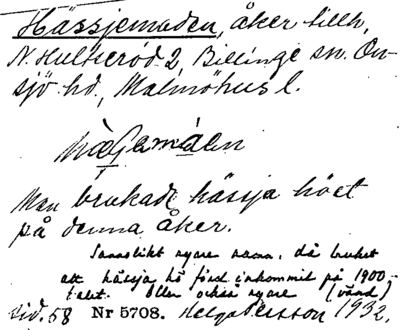 Hässjemaden, åker tillh.
N. Hultseröd 2, Billinge sn. On-
sjö hd., Malmöhus l.
Man brukade hässja höet
på denna åker.
Sannolikt nyare namn, då bruket
att hässja hö först inkommit på 1900-
talet. Eller också nyare (vånd)
sid. 58 Nr 5708. Helga Persson 1932.